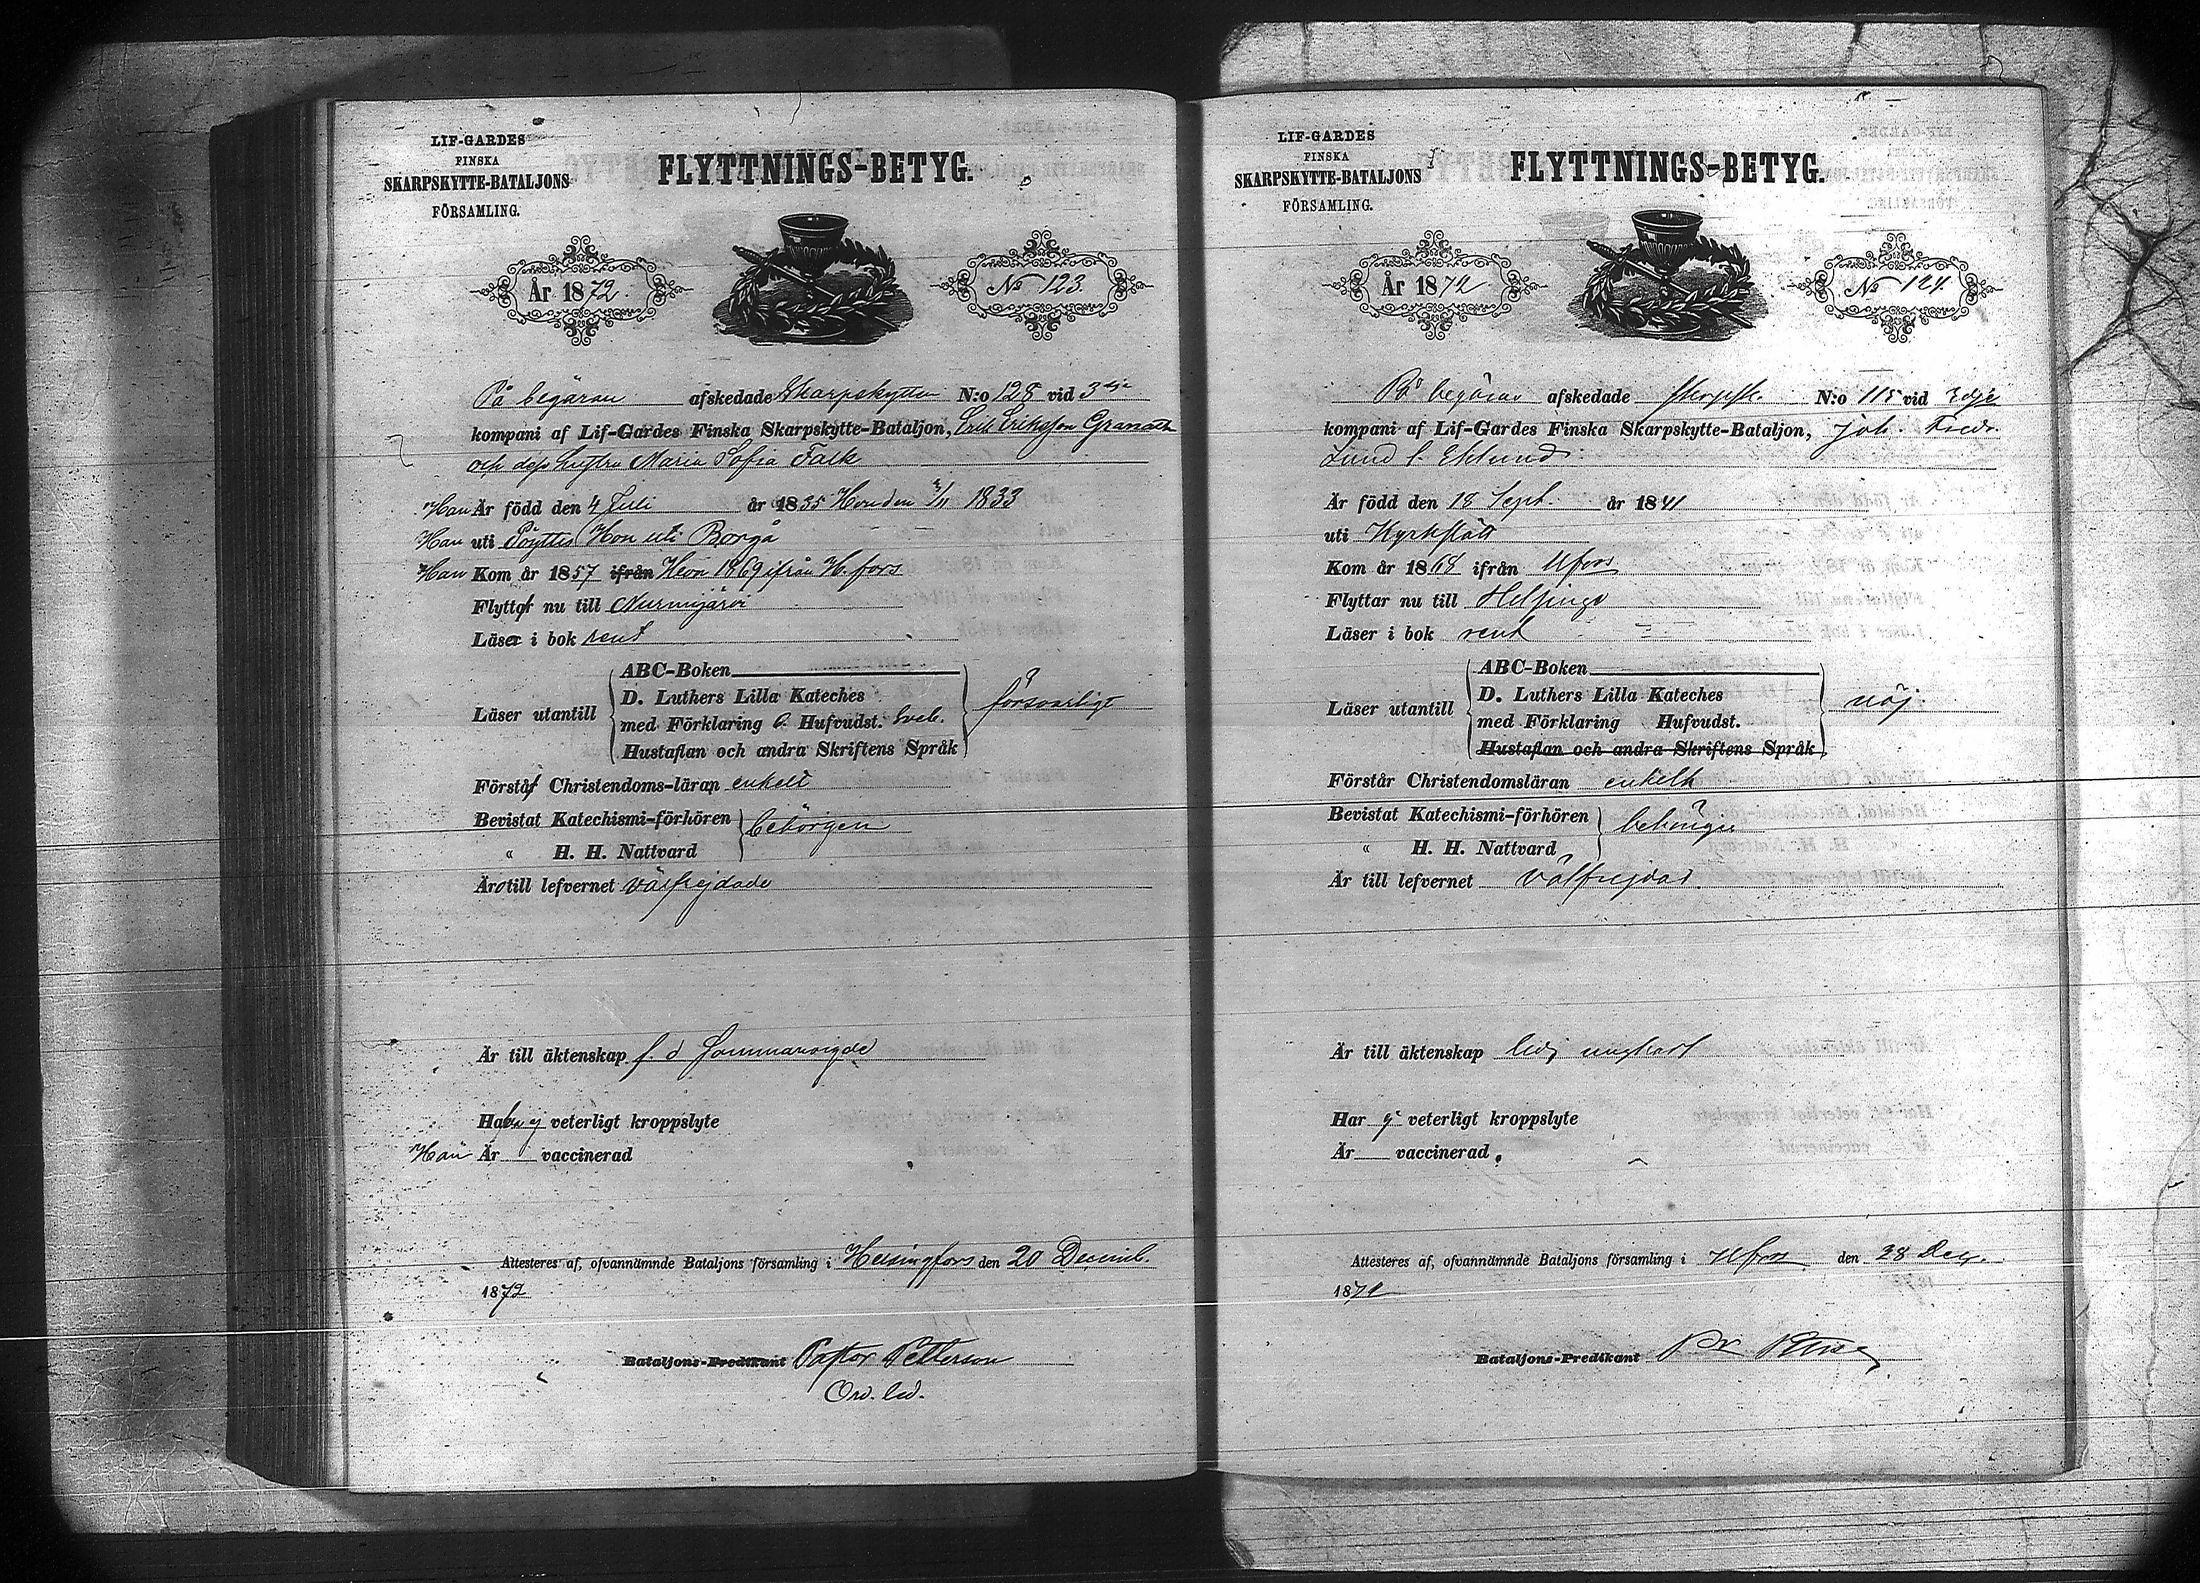 LIF-GARDES
FINSKA
SKARPSKYTTE-BATALJONS
FÖRSAMLING.
FLYTTNINGS-BETYG.
År 1872.
No 123.
På begäran afskedade Skarpskytten N:o 128 vid 3dje
kompani af Lif-Gardes Finska Skarpskytte-Bataljon, Erik Eriksson Granath
och dess hustru Maria Sofia Falk
Han Är född den 4 Juli år 1835 Hon den 1833
Han uti Pöyttis Hon uti Borgå
Han Kom år 1857 ifrån Hon 1869 ifrån H.fors
Flytta nu till Nurmijärvi
Läser i bok rent
Läser utantill
ABC-Boken
D. Luthers Lilla Kateches
med Förklaring o. Hufvudst. Sveb.
Hustaflan och andra Skriftens Språk
försvarligt
Förstå Christendoms-läran enkelt
Bevistat Katechismi-förhören
“ H. H. Nattvard
behörigen
Äro till lefvernet välfrejdade
Är till äktenskap f. d sammanvigde
Hafva ej veterligt kroppslyte
Han Är vaccinerad
Attesteres af, ofvannämnde Bataljons församling i Helsingfors den 20 Decemb.
1872
Bataljons-Predikant Pastor Petterson
Ord. led.
LIF-GARDES
FINSKA
SKARPSKYTTE-BATALJONS
FÖRSAMLING.
FLYTTNINGS-BETYG.
År 1872
No 124.
På begäran afskedade skarpsk. N:o 115 vid 3dje
kompani af Lif-Gardes Finska Skarpskytte-Bataljon, Joh. Fredr.
Lund l. Eklund
Är född den 18 Sept. år 1841
uti Kyrkslätt
Kom år 1868 ifrån Hfors
Flyttar nu till Helsinge
Läser i bok rent
Läser utantill
ABC-Boken
D. Luthers Lilla Kateches
med Förklaring Hufvudst.
Hustaflan och andra Skriftens Språk
nöj.
Förstår Christendomsläran enkelt
Bevistat Katechismi-förhören
“ H. H. Nattvard
behörigen
Är till lefvernet välfrejdad.
Är till äktenskap ledig ungkarl
Har ej veterligt kroppslyte
Är vaccinerad
Attesteres af, ofvannämnde Bataljons församling i Hfors den 28 Dec.
1872
Bataljons-Predikant